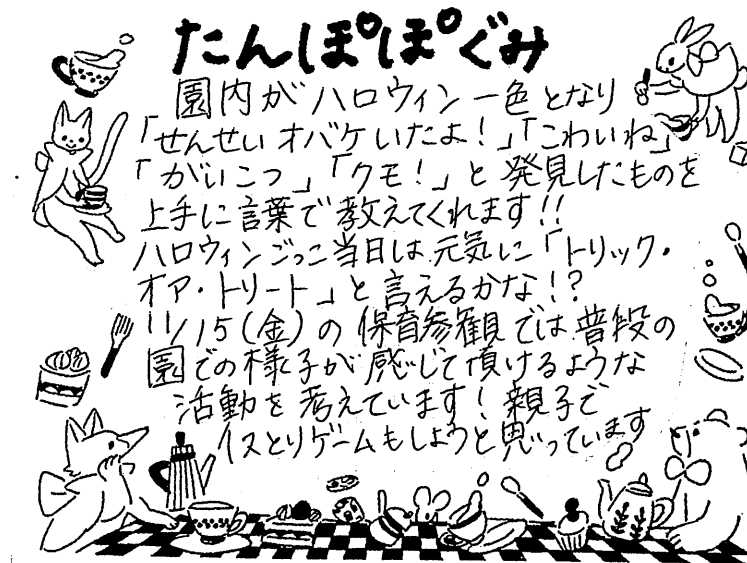 たんぽぽぐみ
園内がハロウィン一色となり
「せんせいオバケいたよ!」「こわいね」
「がいこつ」「クモ!」と発見したものを
上手に言葉で教えてくれます!!
ハロウィンごっこ当日は元気に「トリック・
オア・トリート」と言えるかな!?
11/15(金)の保育参観では普段の
園での様子が感じて頂けるような
活動を考えています!親子で
イスとりゲームもしようと思っています